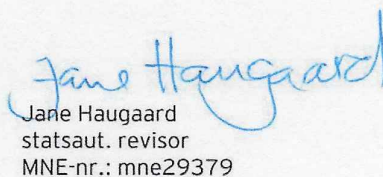 Jane Haugaard
Jane Haugaard
statsaut. revisor
MNE-nr.: mne29379